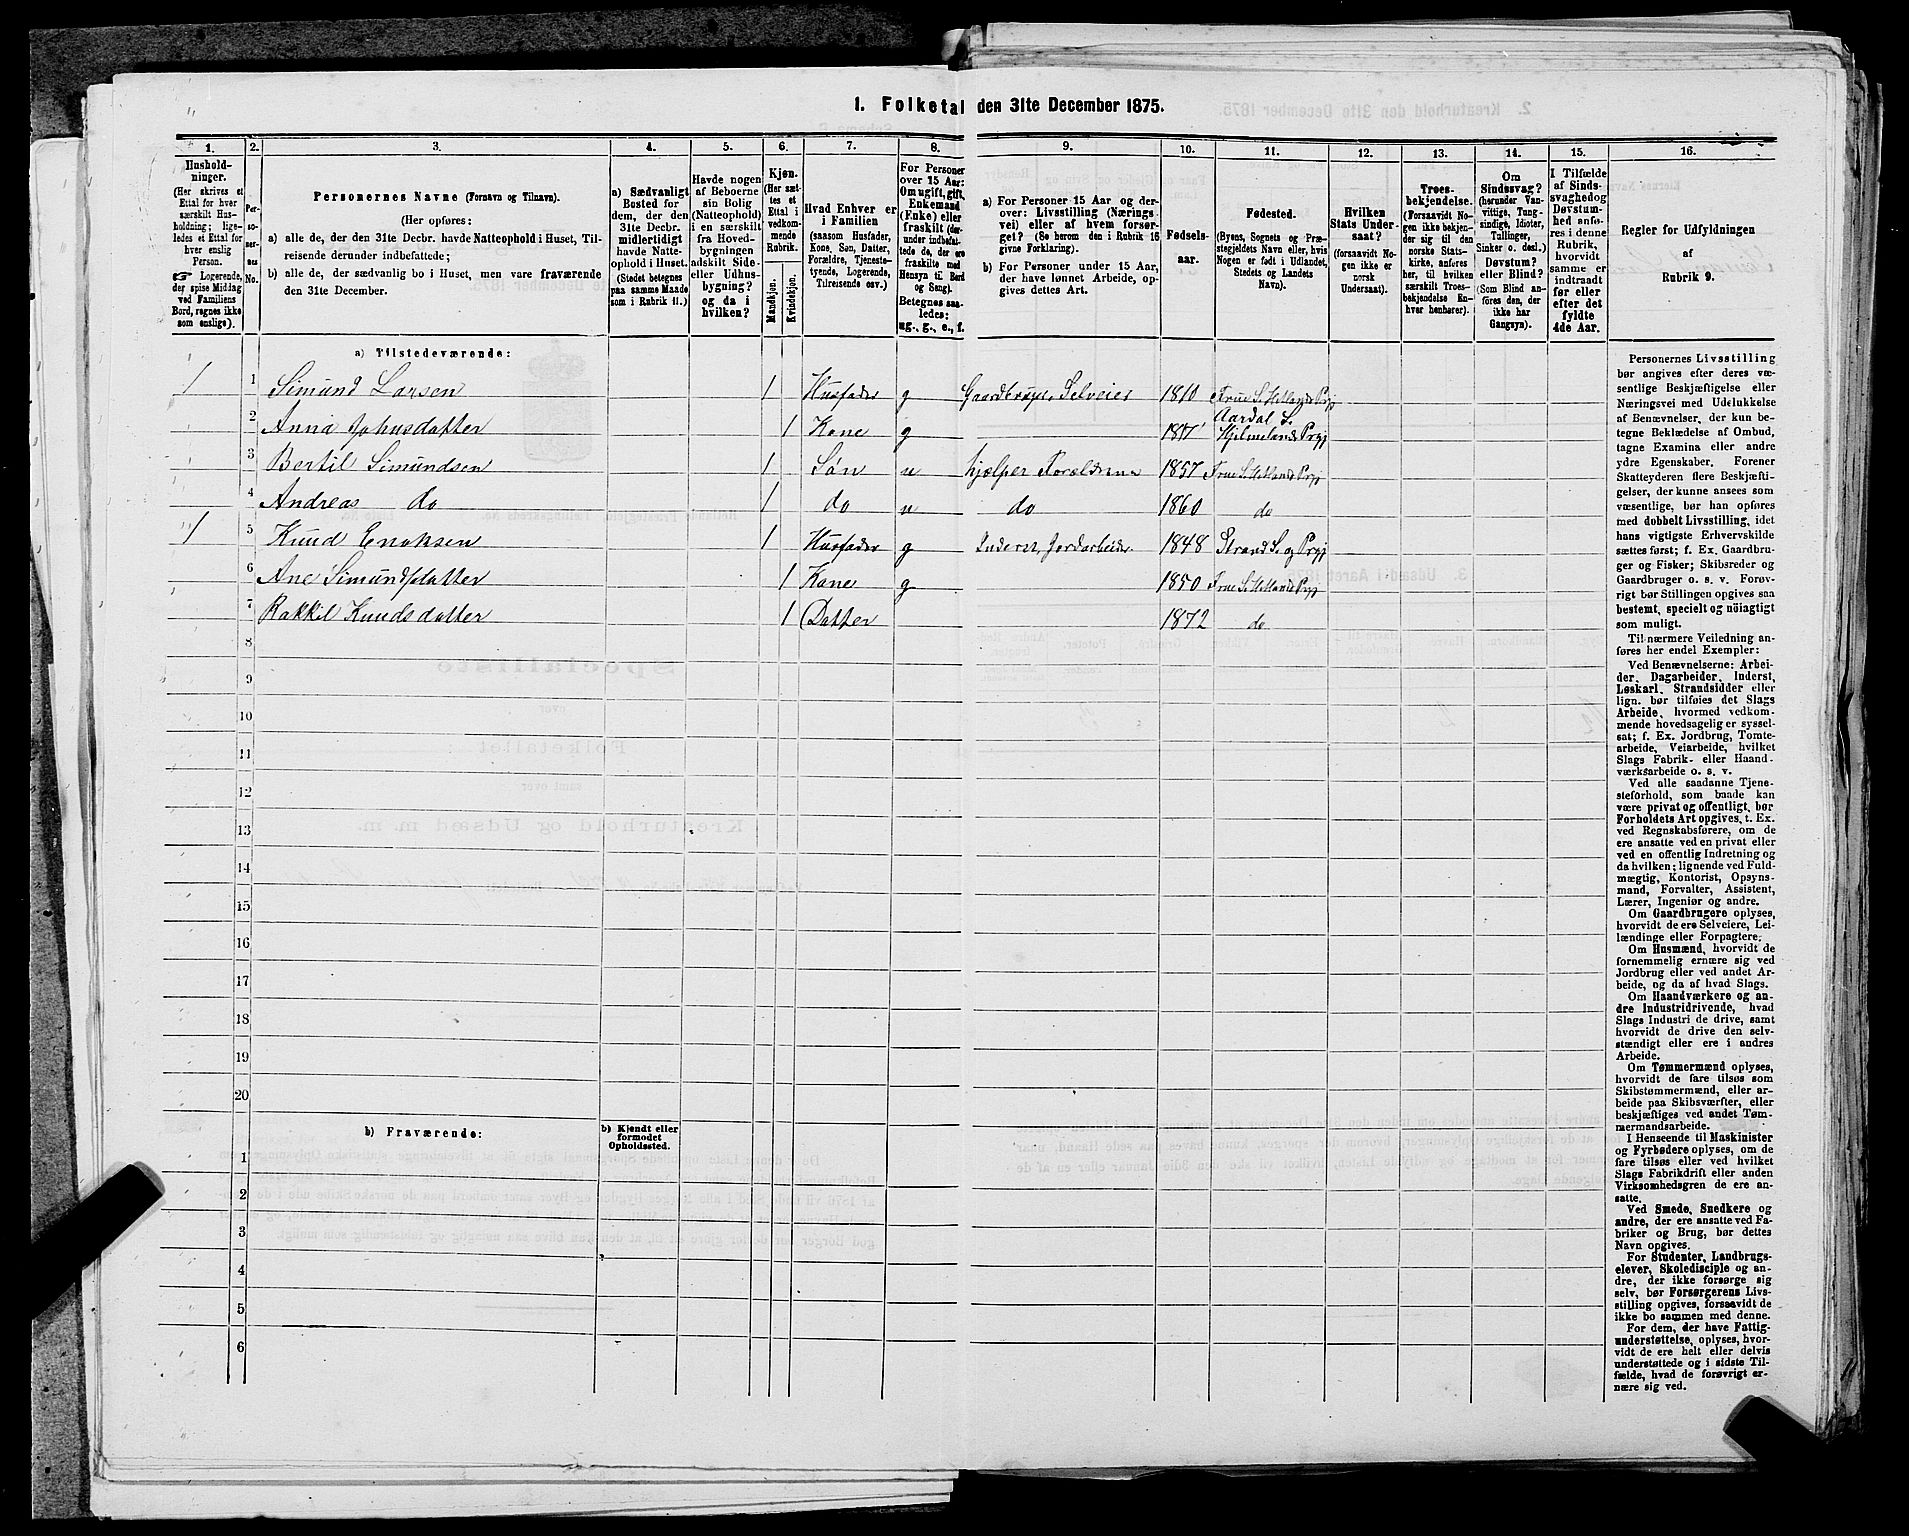 1. Folketal den 31te December 1875.
1. 2. 3. 4. 5. 6. 7. 8. 9. 10. 11. 12. 13. 14. 15. 16.
Hushold-
ninger.
(Her skrives et
Ettal for hver
særskilt Hus-
holdning; lige-
ledes et Ettal for
hver enslig
Person.
☞ Logerende,
der spise Middag
ved Familiens
Bord, regnes ikke
som enslige).
Per-
so-
ner-
nes
No.
Personernes Navne (Fornavn og Tilnavn).
(Her opføres:
a) alle de, der den 31te Decbr. havde Natteophold i Huset, Til-
reisende derunder indbefattede;
b) alle de, der sædvanlig bo i Huset, men vare fraværende
den 31te December.
a) Sædvanligt
Bosted for
dem, der den
31te Decbr.
midlertidigt
havde Natte-
ophold i Huset.
(Stedet betegnes
paa samme Maade
som i Rubrik 11.)
Havde nogen
af Beboerne
sin Bolig
(Natteophold)
i en særskilt
fra Hoved-
bygningen
adskilt Side-
eller Udhus-
bygning?
og da i
hvilken?
Kjøn.
(Her sæt-
tes et
Ettal i
vedkom-
mende
Rubrik.
Mandkjøn.
Kvindekjøn.
Hvad Enhver er
i Familien
(saasom Husfader,
Kone, Søn, Datter,
Forældre, Tjeneste-
tyende, Logerende,
Tilreisende osv.)
For Personer
over 15 Aar:
Om ugift, gift,
Enkemand
(Enke) eller
fraskilt (der-
under indbefat-
tede de, der ere
fraskilte med
Hensyn til Bord
og Seng).
Betegnes saa-
ledes:
ug., g., e., f.
a) For Personer 15 Aar og der-
over: Livsstilling (Nærings-
vei) eller af hvem forsør-
get? (Se herom den i Rubrik 16
givne Forklaring).
b) For Personer under 15 Aar,
der have lønnet Arbeide, op-
gives dettes Art.
Fødsels-
aar.
Fødested.
(Byens, Sognets og Præ-
stegjeldets Navn eller, hvis
Nogen er født i Udlandet,
Stedets og Landets
Navn).
Hvilken
Stats Under-
saat?
(forsaavidt No-
gen ikke er
norsk
Undersaat).
Troes-
bekjendelse.
(Forsaavidt No-
gen ikke bekjen-
der sig til den
norske Stats-
kirke, anføres
her, til hvilken
særskilt Troes-
bekjendelse En-
hver henhører).
Om
Sindssvag?
(herunder Van-
vittige, Tung-
sindige, Idioter,
Tullinger,
Sinker o. desl.)
Døvstum?
eller Blind?
(Som Blind an-
føres den, der
ikke har
Gangsyn).
I Tilfælde
af Sinds-
svaghed og
Døvstum-
hed anfø-
res i denne
Rubrik,
hvorvidt
samme er
indtraadt
før eller
efter det
fyldte
4de Aar.
Regler for Udfyldningen
af
Rubrik 9.
a) Tilstedeværende:
1 1 Simund Larsen 1 Husfader g Gaardbruger, Selveier 1810 Frue S. Hetlands Prgj
2 Anna Johusdatter 1 Kone g 1817 Aardal S. Hjelmelands Prgj
3 Bertil Simundsen 1 Søn u hjelper Forældrene 1857 Frue S. Hetlands Prgj
4 Andreas do 1 do u do 1860 do
1 5 Knud Enoksen 1 Husfader g Inderst, Jordarbeider 1848 Strand S. og Prgj
6 Ane Simundsdatter 1 Kone g 1850 Frue S. Hetlands Prgj
7 Rakkil Knudsdatter 1 Datter 1872 do
8
9
10
11
12
13
14
15
16
17
18
19
20
b) Fraværende:
b) Kjendt eller
formodet
Opholdssted.
1
2
3
4
5
6
Personernes Livsstilling
bør angives efter deres væ-
sentlige Beskjæftigelse eller
Næringsvei med Udelukkelse
af Benævnelser, der kun be-
tegne Beklædelse af Ombud,
tagne Examina eller andre
ydre Egenskaber. Forener
Skatteyderen flere Beskjæfti-
gelser, der kunne ansees som
væsentlige, bør han opføres
med dobbelt Livsstilling, idet
hans vigtigste Erhvervskilde
sættes først; f. Ex. Gaardbru-
ger og Fisker; Skibsreder og
Gaardbruger o. s. v. Forøv-
rigt bør Stillingen opgives saa
bestemt, specielt og nöiagtigt
som muligt.
Til nærmere Veiledning an-
føres her endel Exempler:
Ved Benævnelserne: Arbei-
der, Dagarbeider, Inderst,
Løskarl, Strandsidder eller
lign. bør tilføies det Slags
Arbeide, hvormed vedkom-
mende hovedsagelig er syssel-
sat; f. Ex. Jordbrug, Tomte-
arbeide, Veiarbeide, hvilket
Slags Fabrik- eller Haand-
værksarbeide o. s. v.
Ved alle saadanne Tjene-
steforhold, som baade kan
være privat og offentligt, bør
Forholdets Art opgives, t. Ex.
ved Regnskabsførere, om de
ere ansatte ved en privat eller
ved en offentlig Indretning og
da hvilken; lignende ved Fuld-
mægtig, Kontorist, Opsyns-
mand, Forvalter, Assistent,
Lærer, Ingeniør og andre.
Om Gaardbrugere oplyses,
hvorvidt de ere Selveiere, Lei-
lændinge eller Forpagtere;
Om Husmænd, hvorvidt de
fornemmelig ernære sig ved
Jordbrug eller ved andet Ar-
beide, og da af hvad Slags.
Om Haandværkere og an-
dre Industridrivende, hvad
Slags Industri de drive, samt
hvorvidt de drive den selv-
stændigt eller ere i andres
Arbeide.
Om Tømmermænd oplyses,
hvorvidt de fare tilsøs som
Skibstømmermænd, eller ar-
beide paa Skibsværfter, eller
beskjæftiges ved andet Tøm-
mermandsarbeide.
I Henseende til Maskinister
og Fyrbødere oplyses, om de
fare tilsøs eller ved hvilket
Slags Fabrikdrift eller anden
Virksomhedsgren de ere an-
satte.
Ved Smede, Snedkere og
andre, der ere ansatte ved Fa-
briker og Brug, bør dettes
Navn opgives.
For Studenter, Landbrugs-
elever, Skoledisciple og an-
dre, der ikke forsørge sig
selv, bør Forsørgerens Livs-
stilling opgives, forsaavidt de
ikke bo sammen med denne.
For dem, der have Fattig-
understøttelse, oplyses, hvor-
vidt de ere helt eller delvis
understøttede og i sidste Til-
fælde, hvad de forøvrigt er-
nære sig ved.